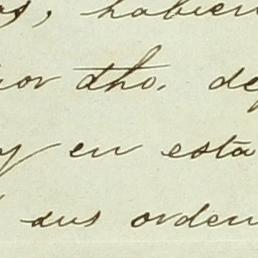 habien
por dho. de
en esta
sus orden